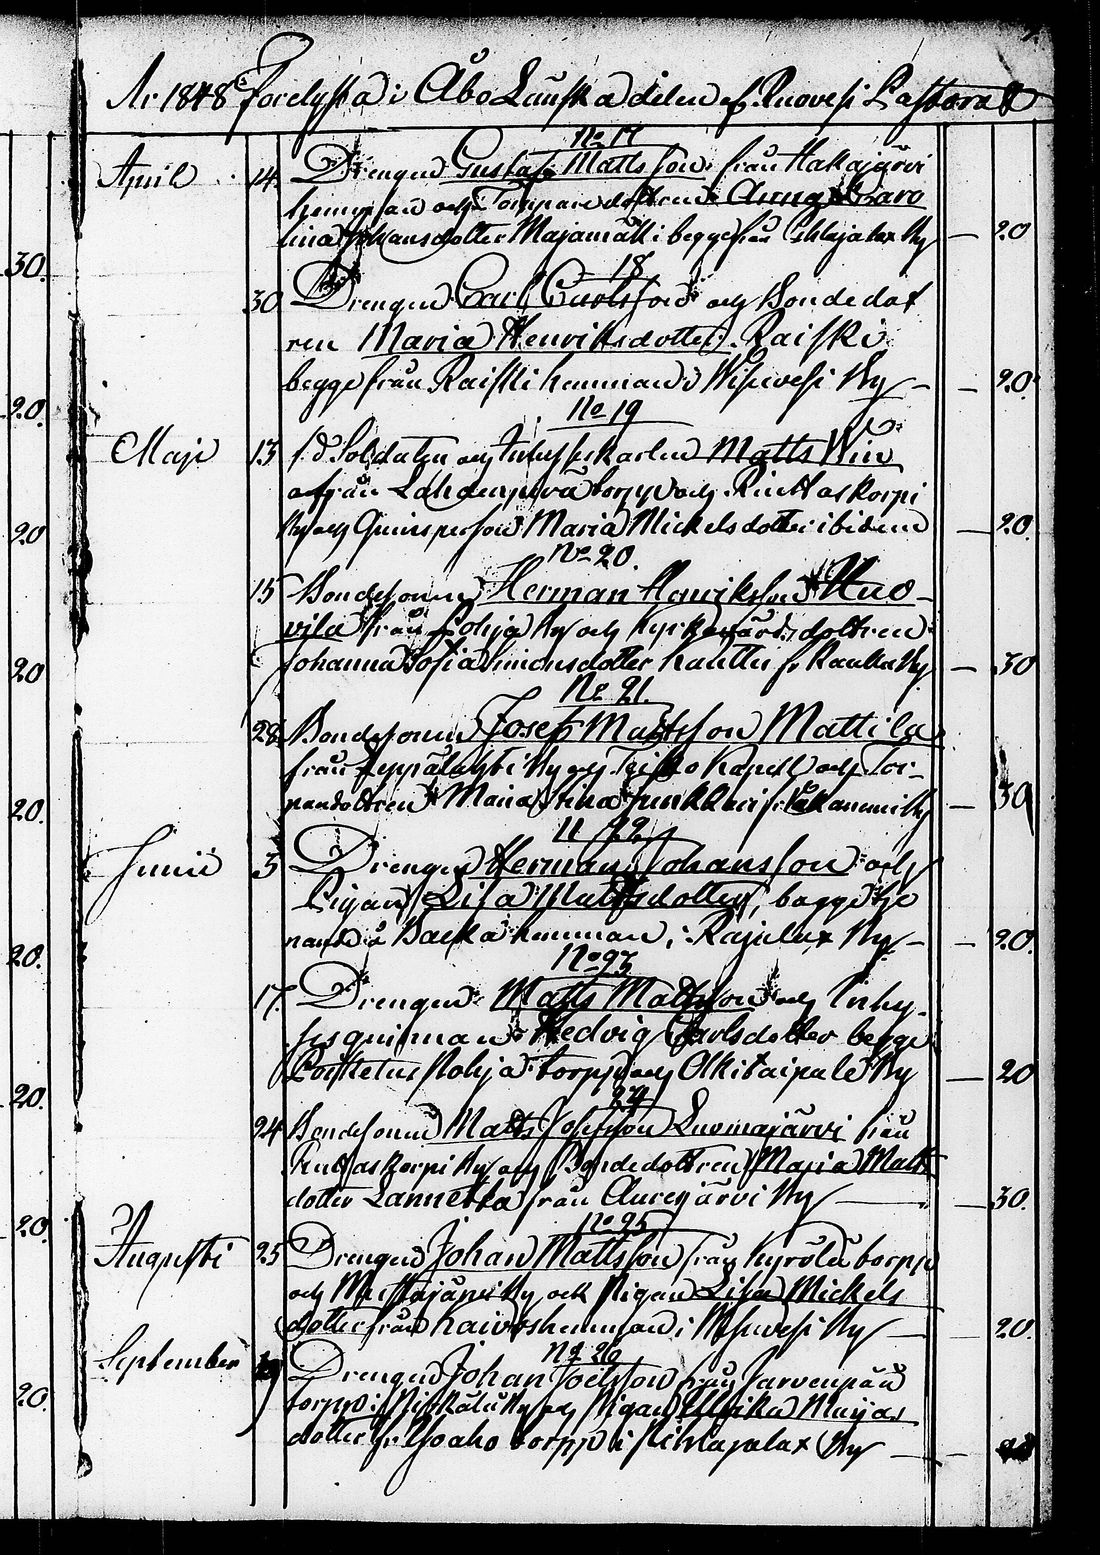 År 1848 Förelysta i Åbo Länska delen af Ruovesi Pastorat
No 17
April 14 Drengen Gustaf Mattsson från Hakajärvi
hemman och Torpare dottren Anna Caro
lina Johansdotter Majamäki begge från Pihlajalax By — 20
18
30 Drengen Carl Carlsson och Bondedot
ren Maria Henriksdotter Raiski
begge från Raiski hemman i Wisuvesi By — 20.
No 19
Maji 13 f.d. Soldaten och Inhyseskarlen Matts Win
från Lahdenperä torp och Ruttaskorpi
By och Qvinsperson Maria Mickelsdotter ibidem — 20.
No 20.
15 Bondesonen Herman Henriksson Uuo-
vila från Pohja By och Kyrkovärdsdottren
Johanna Sofia Simonsdotter Kauttu fr. Kautta By — 30
No 21.
28 Bondesonen Josef Mattsson Mattila
från By och Teisko Kapell och Tor-
paredottren Maria Stina fr. By — 30
22
Junii 5 Drengen Herman Johansson och
Pigan Lisa Mattsdotter, begge tje
nande å Backa hemman i Rajalax By — 20.
No 23
17. Drengen Matts Mattsson och Inhy-
sesqvinnan Hedvig Carlsdotter begge
Pohja torp och Olkitaipale By — 20
24
24 Bondesonen Matts Josefsson Luomajärvi från
Ruttaskorpi By och Bondedottren Maria Matts
dotter Lannetta från Aurejärvi By — 30.
No 25
Augusti 25 Drengen Johan Mattsson från Kyrölä torp
och By och Pigan Lisa Mickels
dotter från Kaivos hemman i Wisuvesi By — 20.
No 26
September 19 Drengen Johan Joelsson från Jarvenpää
torp i By och Pigan Ulrika Maijas
dotter fr. Ahoaho torp i Pihlajalax By —
30.
20.
20
20
20.
20.
20.
20.
20.